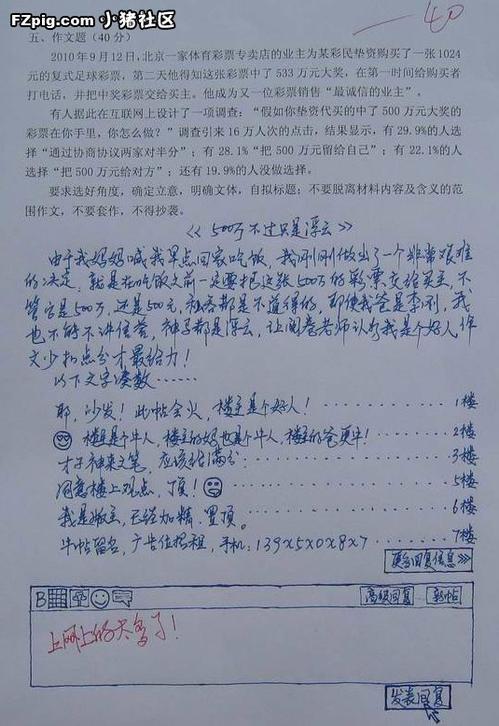 FZpig.com 小猪社区
-40
五、作文题（40分）
2010年9月12日，北京一家体育彩票专卖店的业主为某彩民垫资购买了一张1024
元的复式足球彩票，第二天他得知这张彩票中了533万元大奖，在第一时间给购买者
打电话，并把中奖彩票交给买主。他成为又一位彩票销售“最诚信的业主”。
有人据此在互联网上设计了一项调查：“假如你垫资代买的中了500万元大奖的
彩票在你手里，你怎么做？”调查引来16万人次的点击，结果显示，有29.9%的人选
择“通过协商协议两家对半分”；有28.1%“把500万元留给自己”；有22.1%的人
选择“把500万元给对方”；还有19.9%的人没做选择。
要求选好角度，确定立意，明确文体，自拟标题；不要脱离材料内容及含义的范
围作文，不要套作，不得抄袭。
《500万不过只是浮云》
由于我妈妈喊我早点回家吃饭，我刚刚做出了一个非常艰难
的决定，就是在吃饭之前一定要把这张500万的彩票交给买主，不
管它是500万，还是500元，私吞都是不道德的，即使我爸是李刚，我
也不能不讲信誉，神马都是浮云，让阅卷老师认为我是个好人，作
文少扣点分才最给力！
以下文字凑数……
耶，沙发！此帖会火，楼主是个好人！…………1楼
楼主是个牛人，楼主的妈也是个牛人，楼主的爸更牛！…………2楼
才子神来之笔，应该给满分…………3楼
同意楼上观点，顶！…………5楼
我是版主，已经加精，置顶。…………6楼
牛帖留名，广告位招租，手机：139x5x0x8x7…………7楼
更多回复信息>>>
B
高级回复 新帖
上网上的太多了！
发表回复